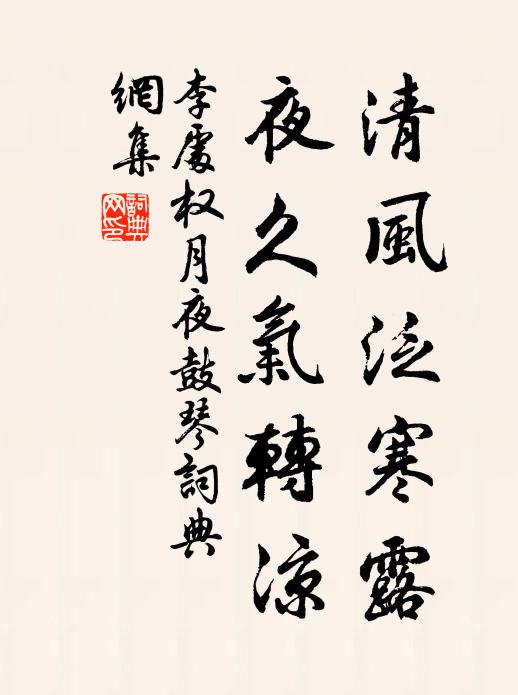 清風泛寒露
夜久氣轉涼
李處权月夜鼓琴詞典
網集
詞典網印